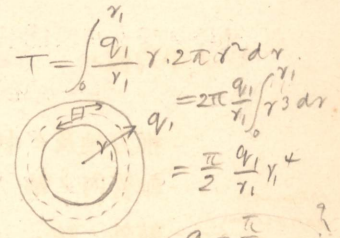 T = ∫₀^{r₁} q₁/r₁ r. 2π r² dr.
= 2π q₁/r₁ ∫₀^{r₁} r³ dr
q₁
r₁
= π/2 q₁/r₁ r₁⁴